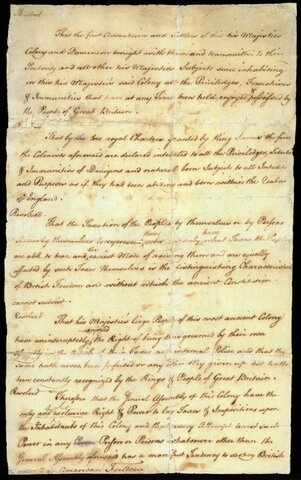 Resolved
That the first Adventurers and Settlers of this his Majesties
Colony and Dominion brought with them and transmitted to their
Posterity and all other his Majesties Subjects since inhabiting
in this his Majesties said Colony all the Priviledges, Franchises
& Immunities that have at any Time been held, enjoyed, & possessed by
the People of Great Britain.
That by two royal Charters granted by King James the first
the Colonists aforesaid are declared intituled to all the Priviledges, Liberties
& Immunities of Denizens and natural born Subjects to all Intents
and Purposes as if they had been abiding and born within the Realm
of England.
Resolved
That the Taxation of the People by themselves or by Persons
chosen by themselves to represent them who can only know what Taxes the People
are able to bear and the easiest Mode of raising them and are equally
affected by such Taxes themselves is the distinguishing Characteristick
of British Freedom and without which the ancient Constitution
cannot subsist.
Resolved
That his Majesties liege People of this most ancient Colony
have uninterruptedly enjoyed the Right of being thus governed by their own
Assembly in the Article of their Taxes and internal Police and that the
same hath never been forfeited or any other Way given up but hath
been constantly recognized by the Kings & People of Great Britain.
Resolved
Therefore that the General Assembly of this Colony have the
only and sole exclusive Right & Power to lay Taxes & Impositions upon
the Inhabitants of this Colony and that every Attempt to vest such
Power in any Person or Persons whatsoever other than the
General Assembly aforesaid has a manifest Tendency to destroy British
as well as American Freedom.